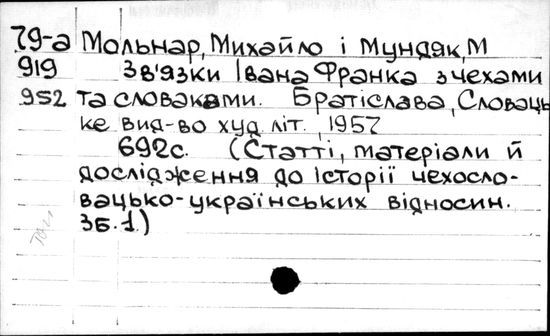 79-а Мольнар, Михайло і Мундяк, М
919 Зв'язки Івана Франка з чехами
952 та словаками. Братіслава, Словаць-
ке вид-во худ літ. , 1957
692с. (Статті, матеріали й
дослідження до історії чехосло-
вацько-українських відносин.
Зб.1.)